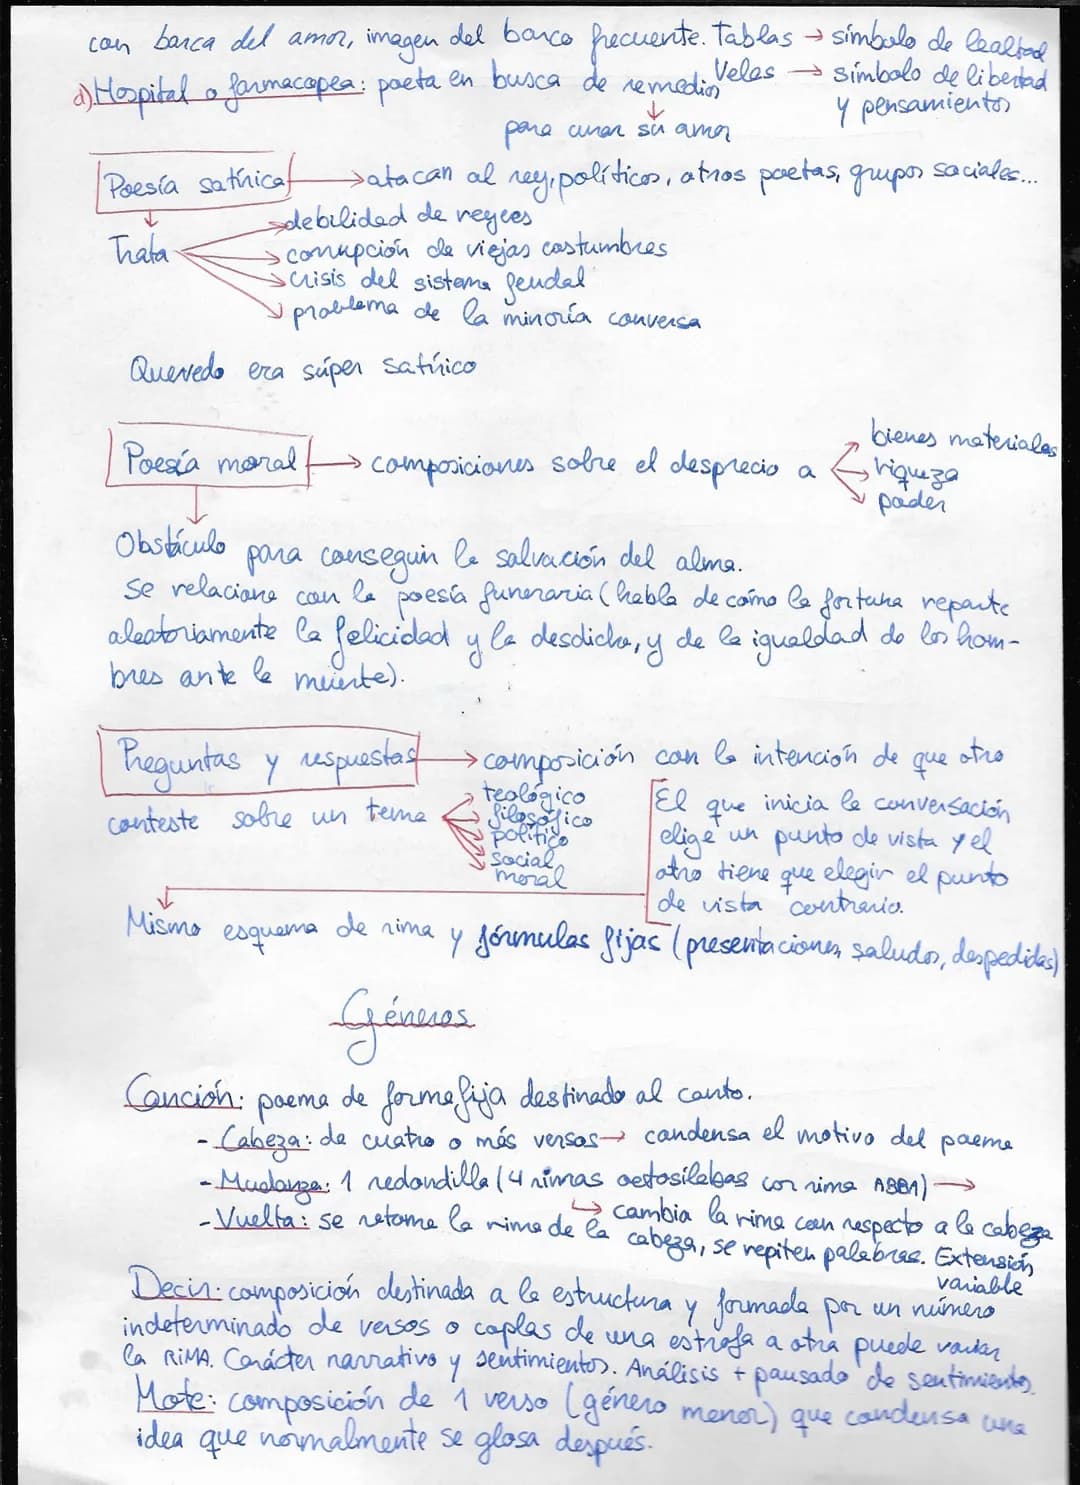 con barca del amor, imagen del barco frecuente. Tablas → símbolo de lealtad
d) Hospital o farmacopea: poeta en busca de remedios Velas → símbolo de libertad
y pensamientos
para curar su amor
Poesía satírica → atacan al rey, políticos, otros poetas, grupos sociales...
Trata
debilidad de reyees
corrupción de viejas costumbres
crisis del sistema feudal
problema de la minoría conversa
Quevedo era súper satírico
bienes materiales
Poesía moral → composiciones sobre el desprecio a
riqueza
poder
Obstáculo para conseguir la salvación del alma.
Se relaciona con la poesía funeraria (habla de cómo la fortuna reparte
aleatoriamente la felicidad y la desdicha, y de la igualdad de los hom-
bres ante la muerte).
Preguntas y respuestas → composición con la intención de que otro
conteste sobre un tema
teológico
filosófico
político
social
moral
El que inicia la conversación
elige un punto de vista y el
otro tiene que elegir el punto
de vista contrario.
Mismo esquema de rima y fórmulas fijas (presentaciones, saludos, despedidas)
Géneros
Canción: poema de forma fija destinado al canto.
- Cabeza: de cuatro o más versos → condensa el motivo del poema
- Mudanza: 1 redondilla (4 rimas octosílabas con rima ABBA) →
↳ cambia la rima con respecto a la cabeza
- Vuelta: se retoma la rima de la cabeza, se repiten palabras. Extensión
variable
Decir: composición destinada a la estructura y formada por un número
indeterminado de versos o coplas de una estrofa a otra puede variar
la RIMA. Carácter narrativo y sentimientos. Análisis + pausado de sentimientos.
Mote: composición de 1 verso (género menor) que condensa una
idea que normalmente se glosa después.